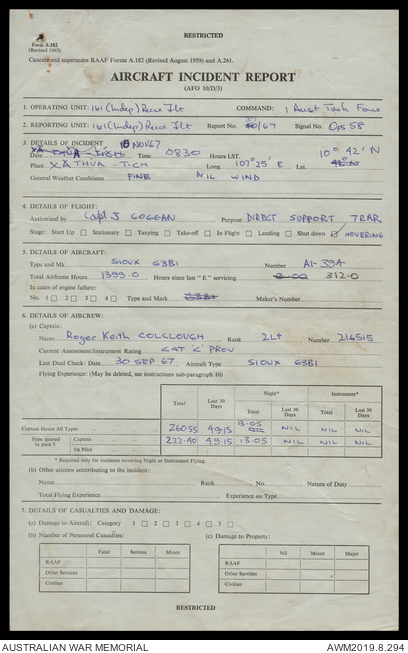 RESTRICTED
Form A.182
(Revised 1965)
Cancels and supersedes RAAF Forms A.182 (Revised August 1959) and A.261.
AIRCRAFT INCIDENT REPORT
(AFO 10/D/3)
1. OPERATING UNIT: 161 (Indep) Recce Flt COMMAND: 1 Aust Task Force
2. REPORTING UNIT: 161 (Indep) Recce Flt Report No. /67 Signal No. Ops 58
3. DETAILS OF INCIDENT 18 NOV 67
Date Time 0830 Hours LST. 10° 42' N
Place XA THUA-TICH Long 107° 25' E Lat.
General Weather Conditions FINE NIL WIND
4. DETAILS OF FLIGHT:
Authorised by Capt J COGGAN Purpose DIRECT SUPPORT 7RAR
Stage: Start Up Stationary Taxying Take-off In Flight Landing Shut down HOVERING
5. DETAILS OF AIRCRAFT:
Type and Mk SIOUX G3B1 Number A1-394
Total Airframe Hours 1399.0 Hours since last "E" servicing 312.0
In cases of engine failure:
No. 1 2 3 4 Type and Mark Maker's Number
6. DETAILS OF AIRCREW:
(a) Captain:
Name Roger Keith COLCLOUGH Rank 2Lt Number 216515
Current Assessment/Instrument Rating CAT 'C' PROV
Last Dual Check: Date 30 SEP 67 Aircraft Type SIOUX G3B1
Flying Experience: (May be deleted, see instructions sub-paragraph 10)
Night* Instrument*
Total Last 30 Days Total Last 30 Days Total Last 30 Days
Captain Hours All Types 260.55 49.15 13.05 NIL NIL NIL
Type quoted in para 5 Captain 222.40 49.15 13.05 NIL NIL NIL
1st Pilot
* Required only for incidents involving Night or Instrument Flying.
(b) Other aircrew contributing to the incident:
Name Rank No. Nature of Duty
Total Flying Experience Experience on Type
7. DETAILS OF CASUALTIES AND DAMAGE:
(a) Damage to Aircraft: Category 1 2 3 4 5
(b) Number of Personnel Casualties: (c) Damage to Property:
Fatal Serious Minor Nil Minor Major
RAAF RAAF
Other Services Other Services
Civilian Civilian
RESTRICTED
AUSTRALIAN WAR MEMORIAL AWM2019.8.294